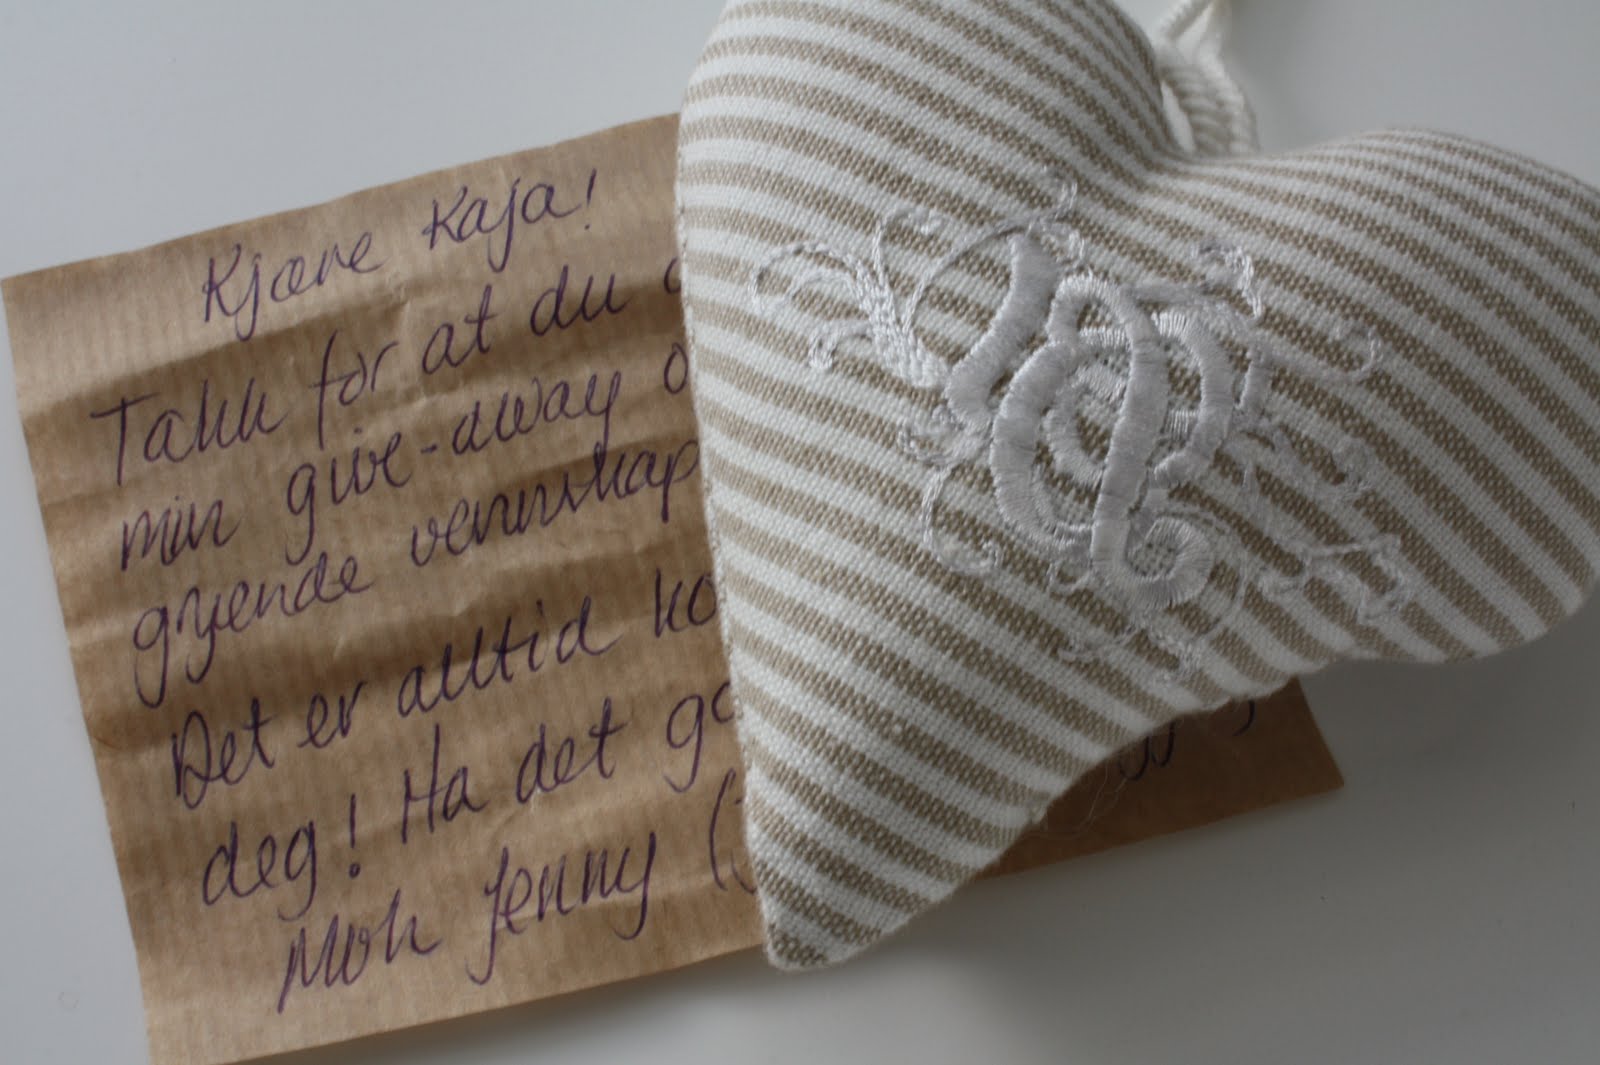 Kjære Kaja!
Takk for at du
min give-away o
gryende vennskap
Det er alltid ko
deg! Ha det go
Jenny (